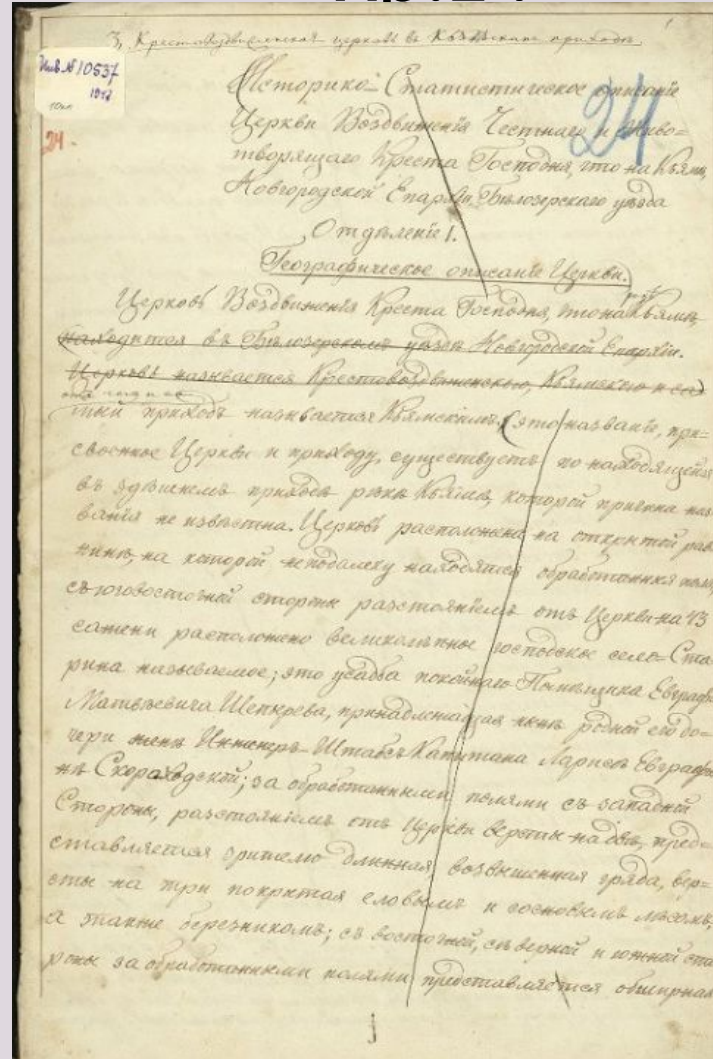 3, Крестовоздвиженская церковь в приходе
Инв. № 10537
24
24.
Историко-Статистическое описаніе
Церкви Воздвиженія Честнаго и Живо=
творящаго Креста Господня, что на Кьямѣ,
Новгородской Епархіи, Бѣлозерскаго уѣзда
Отдѣленіе 1.
Географическое описаніе Церкви.
Церковь Воздвиженія Креста Господня, что на Кьямѣ,
находится въ Бѣлозерскомъ уѣздѣ Новгородской Епархіи.
Церковь называется Крестовоздвиженскою, Кьямскою и са=
мый приходъ называется Кьямскимъ; это названіе, при=
своенное Церкви и приходу, существуетъ по находящейся
въ здѣшнемъ приходѣ рѣкѣ Кьямѣ, которой причина наз
ванія не извѣстна. Церковь расположена на открытой рав
нинѣ, на которой неподалеку находятся обработанныя поля,
съ юговосточной стороны разстояніемъ отъ Церкви на 43
сажени расположено великолѣпное господское село Ста
рина называемое; это усадьба покойнаго Помѣщика Евграфа
Матвѣевича принадлежащая нынѣ родной его до=
чери женѣ Инженеръ-Штабсъ Капитана Ларисѣ Евграфов
нѣ за обработанными полями съ западной
Стороны, разстояніемъ отъ Церкви версты на двѣ, пред=
ставляется зрителю длинная возвышенная гряда, вер=
сты на три покрытая еловымъ и сосновымъ лѣсомъ,
а также березникомъ; съ восточной, сѣверной и южной сто
роны за обработанными полями представляется обширная